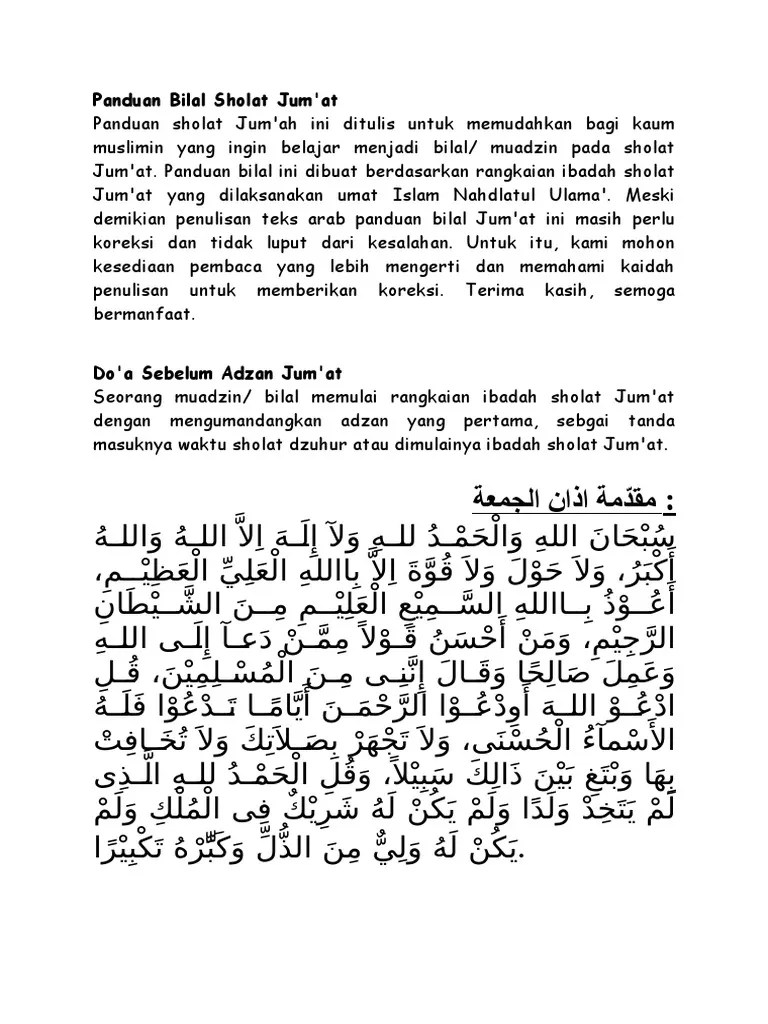 Panduan Bilal Sholat Jum'at
Panduan sholat Jum'ah ini ditulis untuk memudahkan bagi kaum
muslimin yang ingin belajar menjadi bilal/ muadzin pada sholat
Jum'at. Panduan bilal ini dibuat berdasarkan rangkaian ibadah sholat
Jum'at yang dilaksanakan umat Islam Nahdlatul Ulama'. Meski
demikian penulisan teks arab panduan bilal Jum'at ini masih perlu
koreksi dan tidak luput dari kesalahan. Untuk itu, kami mohon
kesediaan pembaca yang lebih mengerti dan memahami kaidah
penulisan untuk memberikan koreksi. Terima kasih, semoga
bermanfaat.
Do'a Sebelum Adzan Jum'at
Seorang muadzin/ bilal memulai rangkaian ibadah sholat Jum'at
dengan mengumandangkan adzan yang pertama, sebgai tanda
masuknya waktu sholat dzuhur atau dimulainya ibadah sholat Jum'at.
مقدّمة اذان الجمعة :
سُبْحَانَ اللهِ وَالْحَمْـدُ للـهِ وَلآ إِلَـهَ اِلاَّ اللـهُ وَاللـهُ
أَكْبَرُ، وَلاَ حَوْلَ وَلاَ قُوَّةَ اِلاَّ بِااللهِ الْعَلِيِّ الْعَظِيْـمِ،
أَعُـوْذُ بِـااللهِ السَّـمِيْعِ الْعَلِيْـمِ مِـنَ الشَّـيْطَانِ
الرَّجِيْمِ، وَمَنْ أَحْسَنُ قَـوْلاً مِمَّـنْ دَعـآ إِلَـى اللـهِ
وَعَمِلَ صَالِحًا وَقَـالَ إِنَّنِـى مِـنَ الْمُسْـلِمِيْنَ، قُـلِ
ادْعُـوْ اللـهَ أَوِدْعُـوْا الرَّحْمَـنَ أَيَّامًـا تَـدْعُوْا فَلَـهُ
الأَسْمآءُ الْحُسْنَى، وَلاَ تَجْهَرْ بِصَـلاَتِكَ وَلاَ تُخَـافِتْ
بِهَا وَبْتَغِ بَيْنَ ذَالِكَ سَبِيْلاً، وَقُلِ الْحَمْـدُ للـهِ الَّـذِى
لَمْ يَتَخِذْ وَلَدًا وَلَمْ يَكُنْ لَهُ شَرِيْكٌ فِى الْمُلْكِ وَلَمْ
يَكُنْ لَهُ وَلِيٌّ مِنَ الذُّلِّ وَكَبِّرْهُ تَكْبِيْرًا.